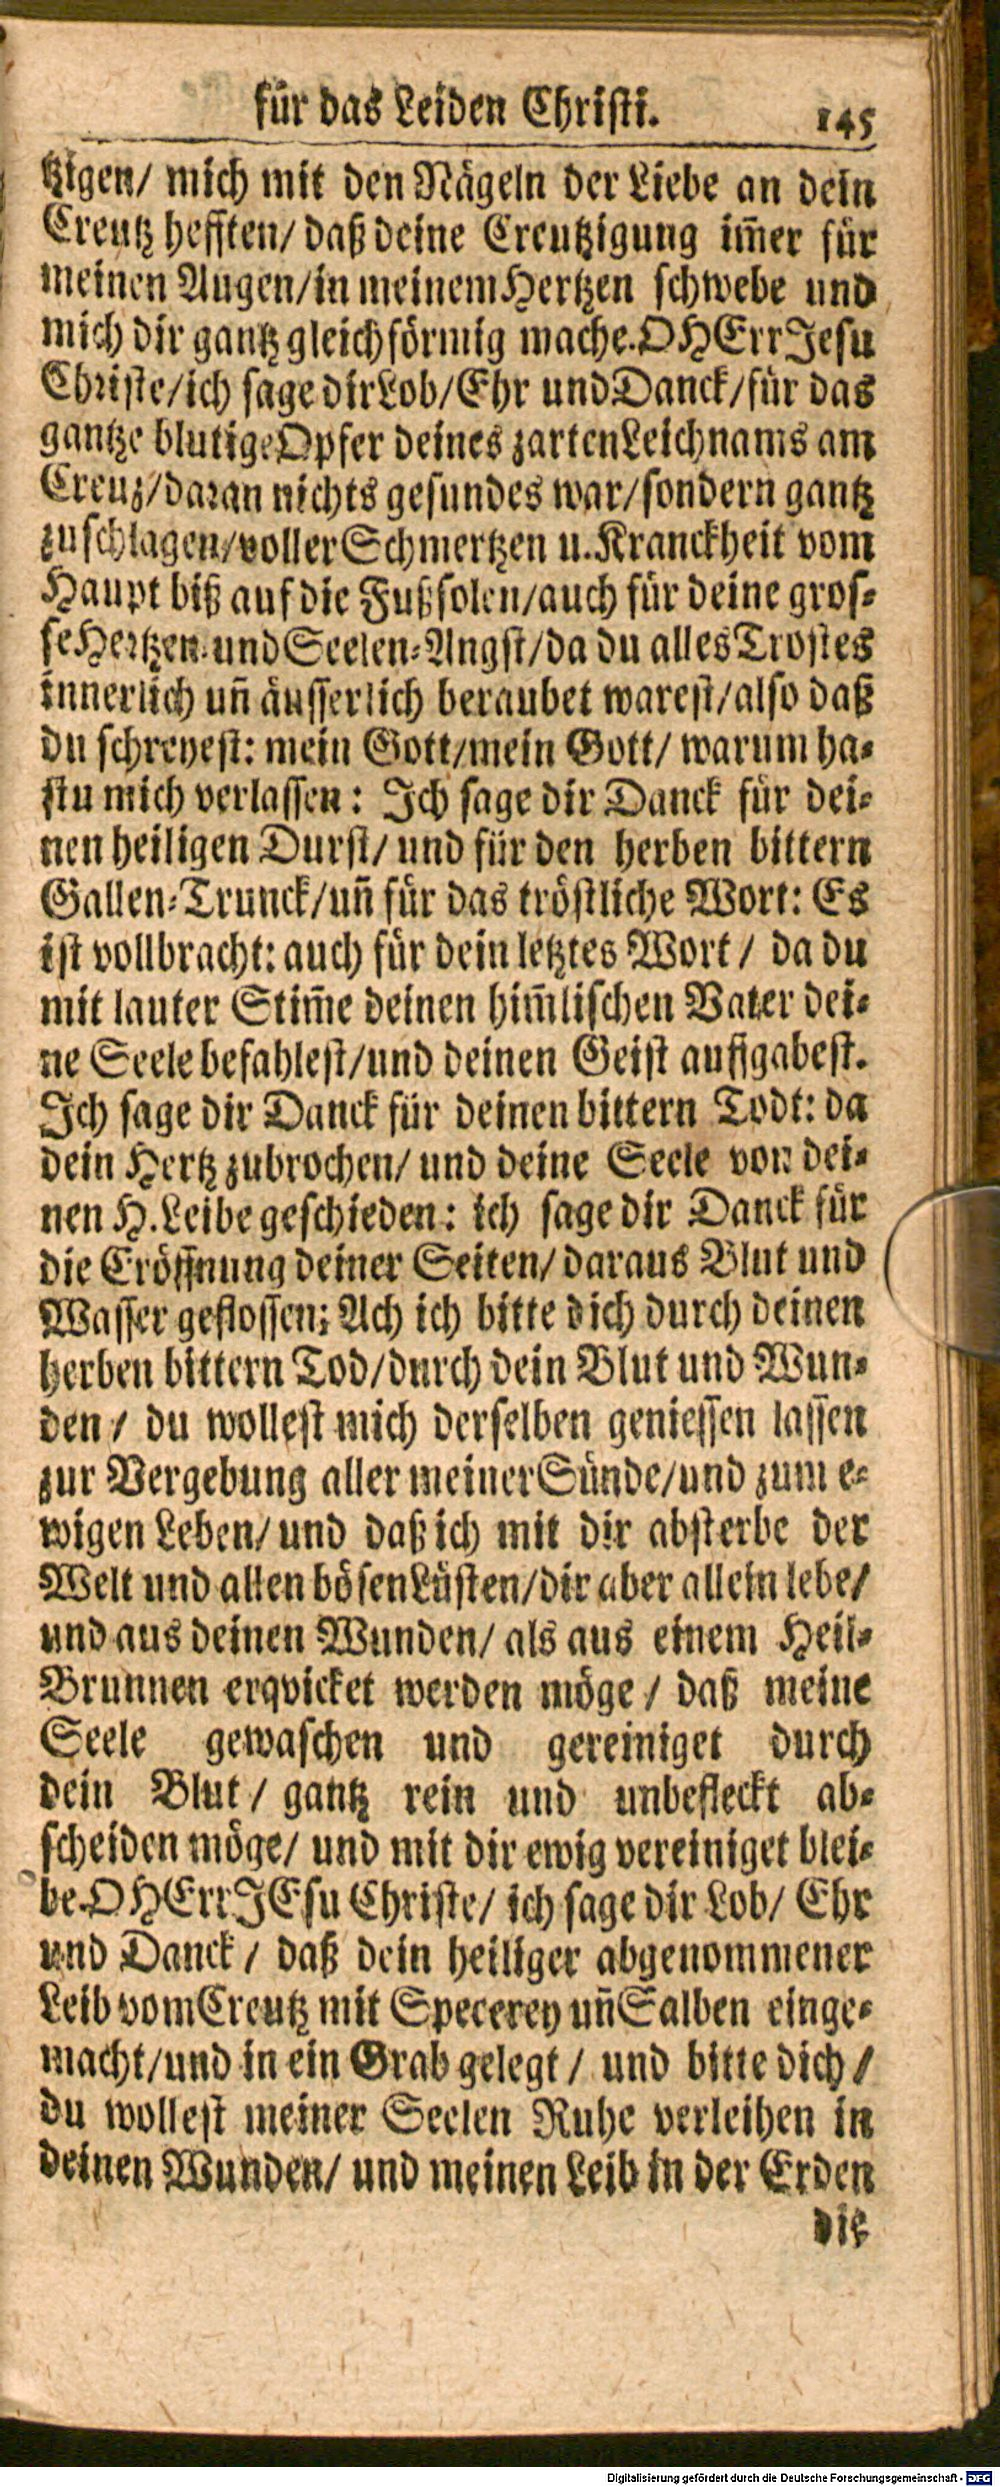 für das Leiden Christi. 145
tzigen/ mich mit den Nägeln der Liebe an dein
Creutz hefften/ daß deine Creutzigung im̃er für
meinen Augen/in meinem Hertzen schwebe und
mich dir gantz gleichförmig mache. O HErr Jesu
Christe/ich sage dir Lob/Ehr und Danck/für das
gantze blutige Opfer deines zarten Leichnams am
Creuz/daran nichts gesundes war/sondern gantz
zuschlagen/voller Schmertzen u. Kranckheit vom
Haupt biß auf die Fußsolen/auch für deine gros-
se Hertzen- und Seelen-Angst/da du alles Trostes
innerlich uñ äusserlich beraubet warest/also daß
du schreyest: mein Gott/mein Gott/ warum ha-
stu mich verlassen: Ich sage dir Danck für dei-
nen heiligen Durst/ und für den herben bittern
Gallen-Trunck/uñ für das tröstliche Wort: Es
ist vollbracht: auch für dein letztes Wort/ da du
mit lauter Stim̃e deinen him̃lischen Vater dei-
ne Seele befahlest/und deinen Geist auffgabest.
Ich sage dir Danck für deinen bittern Todt: da
dein Hertz zubrochen/ und deine Seele von dei-
nen H. Leibe geschieden: ich sage dir Danck für
die Eröffnung deiner Seiten/ daraus Blut und
Wasser geflossen; Ach ich bitte dich durch deinen
herben bittern Tod/durch dein Blut und Wun-
den/ du wollest mich derselben geniessen lassen
zur Vergebung aller meiner Sünde/und zum e-
wigen Leben/ und daß ich mit dir absterbe der
Welt und allen bösen Lüsten/dir aber allein lebe/
und aus deinen Wunden/ als aus einem Heil-
Brunnen erqvicket werden möge/ daß meine
Seele gewaschen und gereiniget durch
dein Blut/ gantz rein und unbefleckt ab-
scheiden möge/ und mit dir ewig vereiniget blei-
be. O HErr JEsu Christe/ ich sage dir Lob/ Ehr
und Danck/ daß dein heiliger abgenommener
Leib vom Creutz mit Specerey uñ Salben einge-
macht/und in ein Grab gelegt/ und bitte dich/
du wollest meiner Seelen Ruhe verleihen in
deinen Wunden/ und meinen Leib in der Erden
die
Digitalisierung gefördert durch die Deutsche Forschungsgemeinschaft - DFG